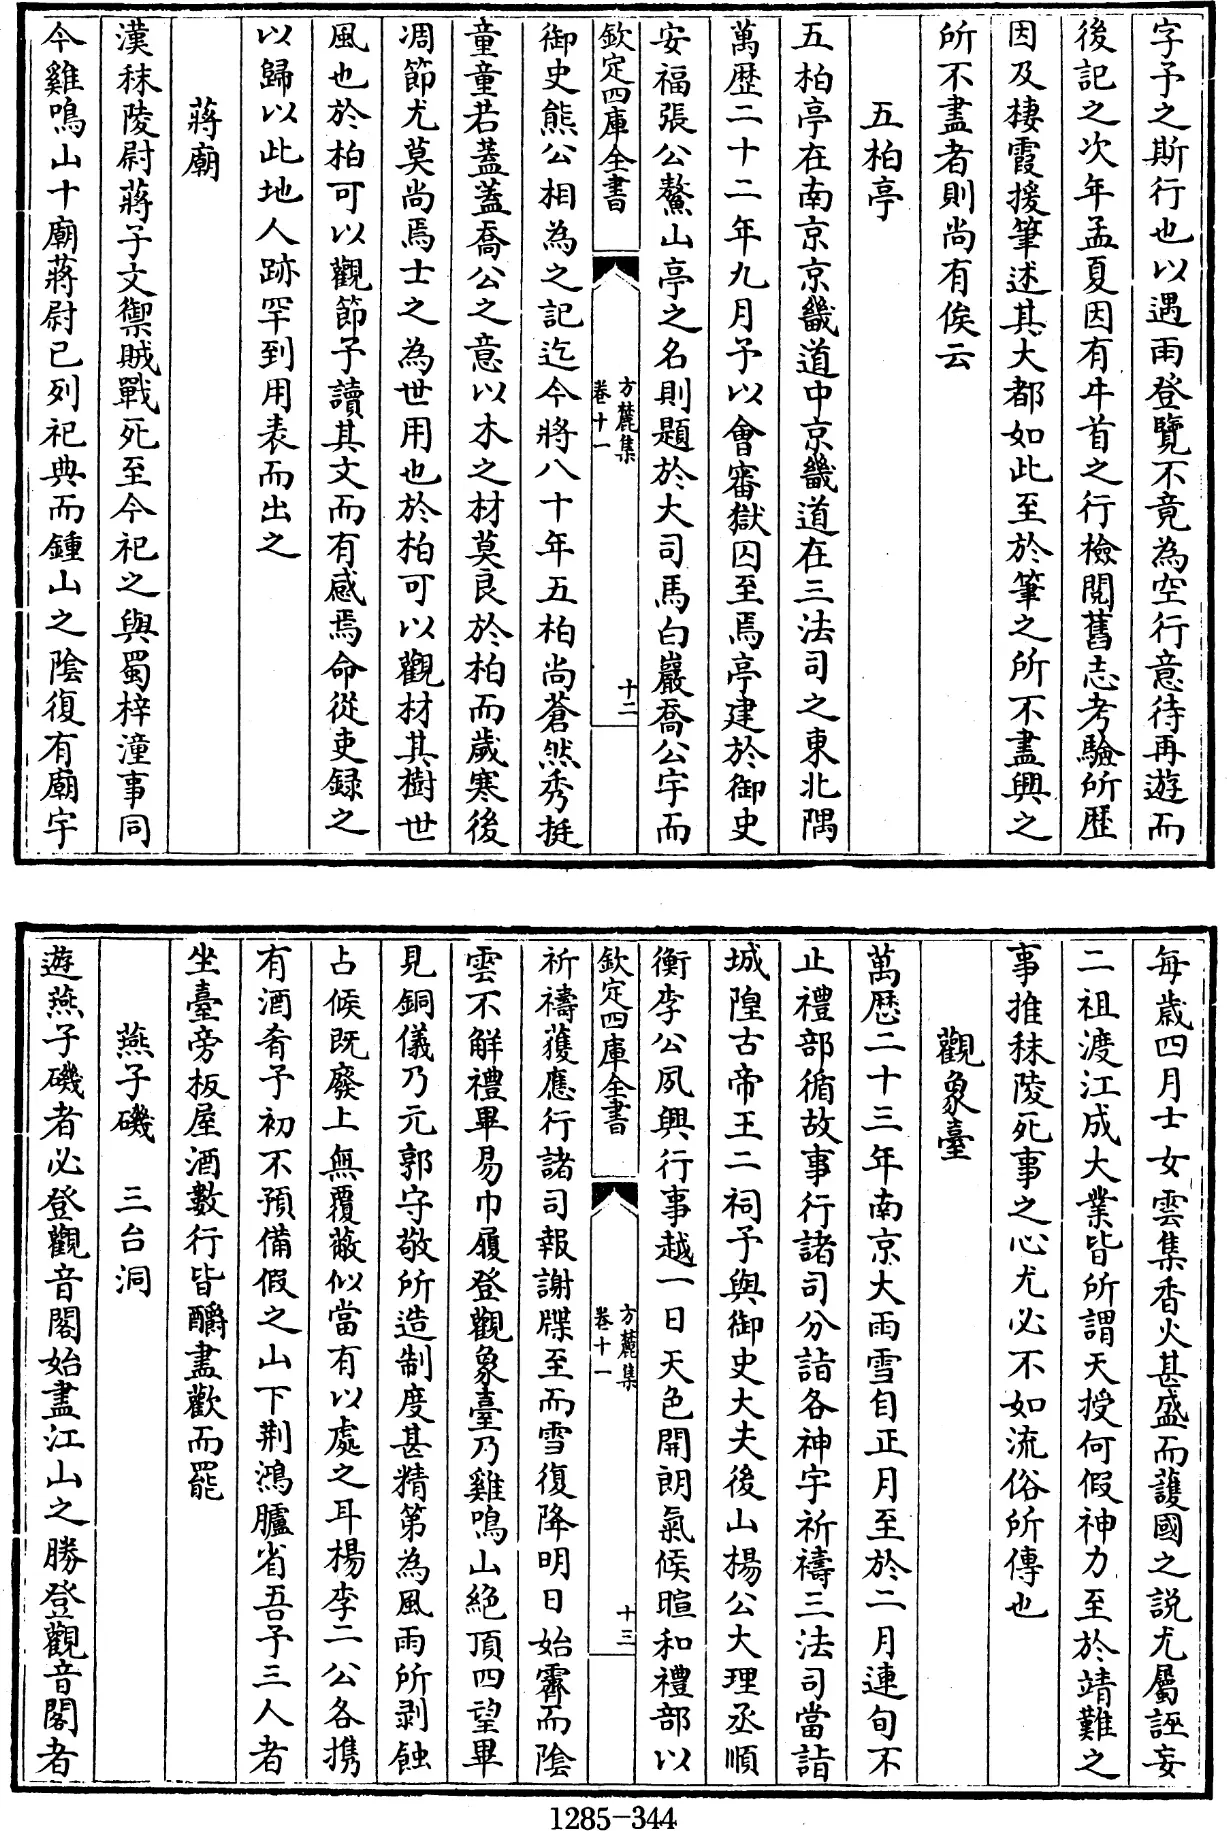 字予之斯行也以遇雨登覽不竟為空行意待再遊而
後記之次年孟夏因有牛首之行檢閲舊志考驗所歴
因及棲霞援筆述其大都如此至於筆之所不盡興之
所不盡者則尚有俟云
五柏亭
五柏亭在南京京畿道中京畿道在三法司之東北隅
萬歴二十二年九月予以會審獄囚至焉亭建於御史
安福張公鰲山亭之名則題於大司馬白巖喬公宇而
欽定四庫全書
方麓集
卷十一
十二
御史熊公相為之記迄今將八十年五柏尚蒼然秀挺
童童若蓋蓋喬公之意以木之材莫良於柏而歲寒後
凋節尤莫尚焉士之為世用也於柏可以觀材其樹世
風也於柏可以觀節予讀其文而有感焉命從吏録之
以歸以此地人跡罕到用表而出之
蔣廟
漢秣陵尉蔣子文禦賊戰死至今祀之與蜀梓潼事同
今雞鳴山十廟蔣尉已列祀典而鍾山之陰復有廟宇
每歲四月士女雲集香火甚盛而護國之説尤屬誣妄
二祖渡江成大業皆所謂天授何假神力至於靖難之
事推秣陵死事之心尤必不如流俗所傳也
觀象臺
萬歴二十三年南京大雨雪自正月至於二月連旬不
止禮部循故事行諸司分詣各神宇祈禱三法司當詣
城隍古帝王二祠予與御史大夫後山楊公大理丞順
衡李公夙興行事越一日天色開朗氣候暄和禮部以
欽定四庫全書
方麓集
卷十一
十三
祈禱獲應行諸司報謝牒至而雪復降明日始霽而陰
雲不解禮畢易巾履登觀象臺乃雞鳴山絶頂四望畢
見銅儀乃元郭守敬所造制度甚精第為風雨所剥蝕
占候既廢上無覆蔽似當有以處之耳楊李二公各携
有酒肴予初不預備假之山下荆鴻臚省吾予三人者
坐臺旁板屋酒數行皆釂盡歡而罷
燕子磯　三台洞
遊燕子磯者必登觀音閣始盡江山之勝登觀音閣者
1285-344